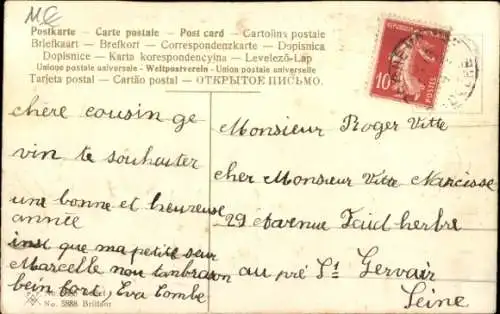 MC
Postkarte - Carte postale - Post card - Cartolina postale
Briefkaart - Brefkort - Correspondenzkarte - Dopisnica
Dopisnice - Karta korespondencyjna - Levelező-Lap
Unione postale universale - Weltpostverein - Union postale universelle
Tarjeta postal - Cartão postal - ОТКРЫТОЕ ПИСЬМО.
10
POSTES
chère cousin ge
vin te souhaiter
une bonne et heureuse
année
insi que ma petite seur
Marcelle nou tenbrason
bein fort, Eva Combe
No. 5888 Brillant
Monsieur Roger Vitte
cher Monsieur Vitte Narcisse
29 Avenue Faid herbe
au pré St Gervair
Seine